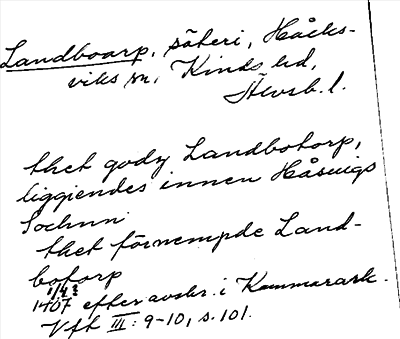 Landboarp, säteri, Håcks-
viks sn, Kinds hd,
Älvsb. l.
thet godz Landbotorp,
liggiendes innen Håsuigs
Sochnn
thet förnempde Land-
botorp
1/4 1407 efter avskr. i Kammarark.
Vft III: 9-10, s. 101.